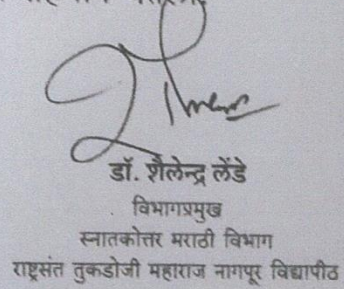 डॉ. शैलेन्द्र लेंडे
विभागप्रमुख
स्नातकोत्तर मराठी विभाग
राष्ट्रसंत तुकडोजी महाराज नागपूर विद्यापीठ